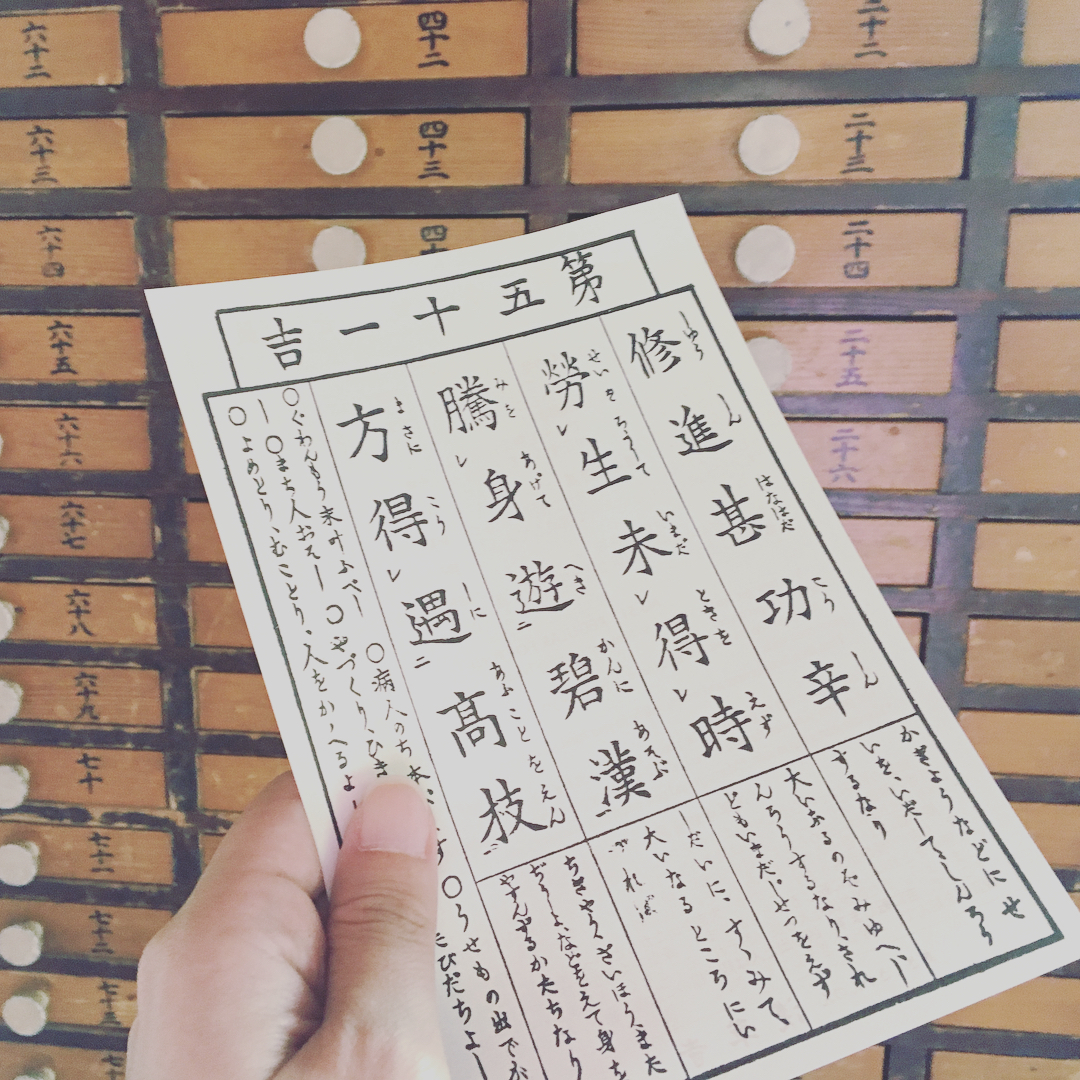 第五十一吉
修進甚功辛
しゆう しん はなはだ こう しん
勞レ生未レ得レ時
せいを ろうして いまだ ときを えず
騰レ身遊二碧漢一
みを あげて へき かんに あそぶ
方得レ遇二高技一
まさに こう しに あふことをえん
かぎようなどにせ
いをいだしてしんろう
するなり
大いふるのぞみゆへしん
ろうするなり、され
ともいまだじせつをえず
しだいに、すゝみて、
大いなるところにい
づれば
ちぎやう、ざいほう、また
やすんずるかたちなり
〇ぐわんもう末叶ふべし
〇病人
〇まち人おそし
〇やづくり、ひき
〇よめとり、むことり、人をかゝへるよし
〇うせもの出でが
たびだちよし
四十二
四十三
二十二
二十三
二十四
二十五
二十六
六十二
六十三
六十四
六十五
六十六
六十七
六十八
六十九
七十
七十一
七十二
七十三